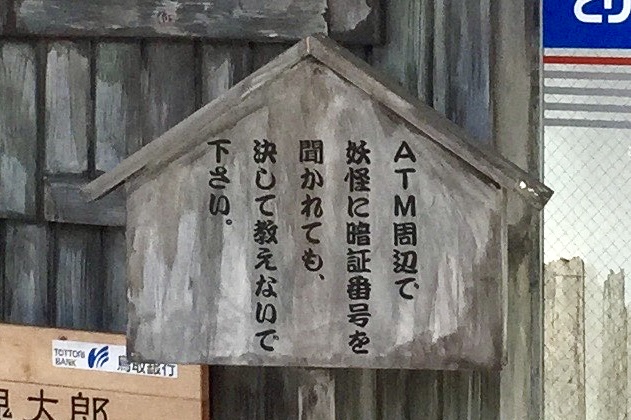 ATM周辺で
妖怪に暗証番号を
聞かれても、
決して教えないで
下さい。
TOTTORI
BANK
鳥取銀行
鬼太郎